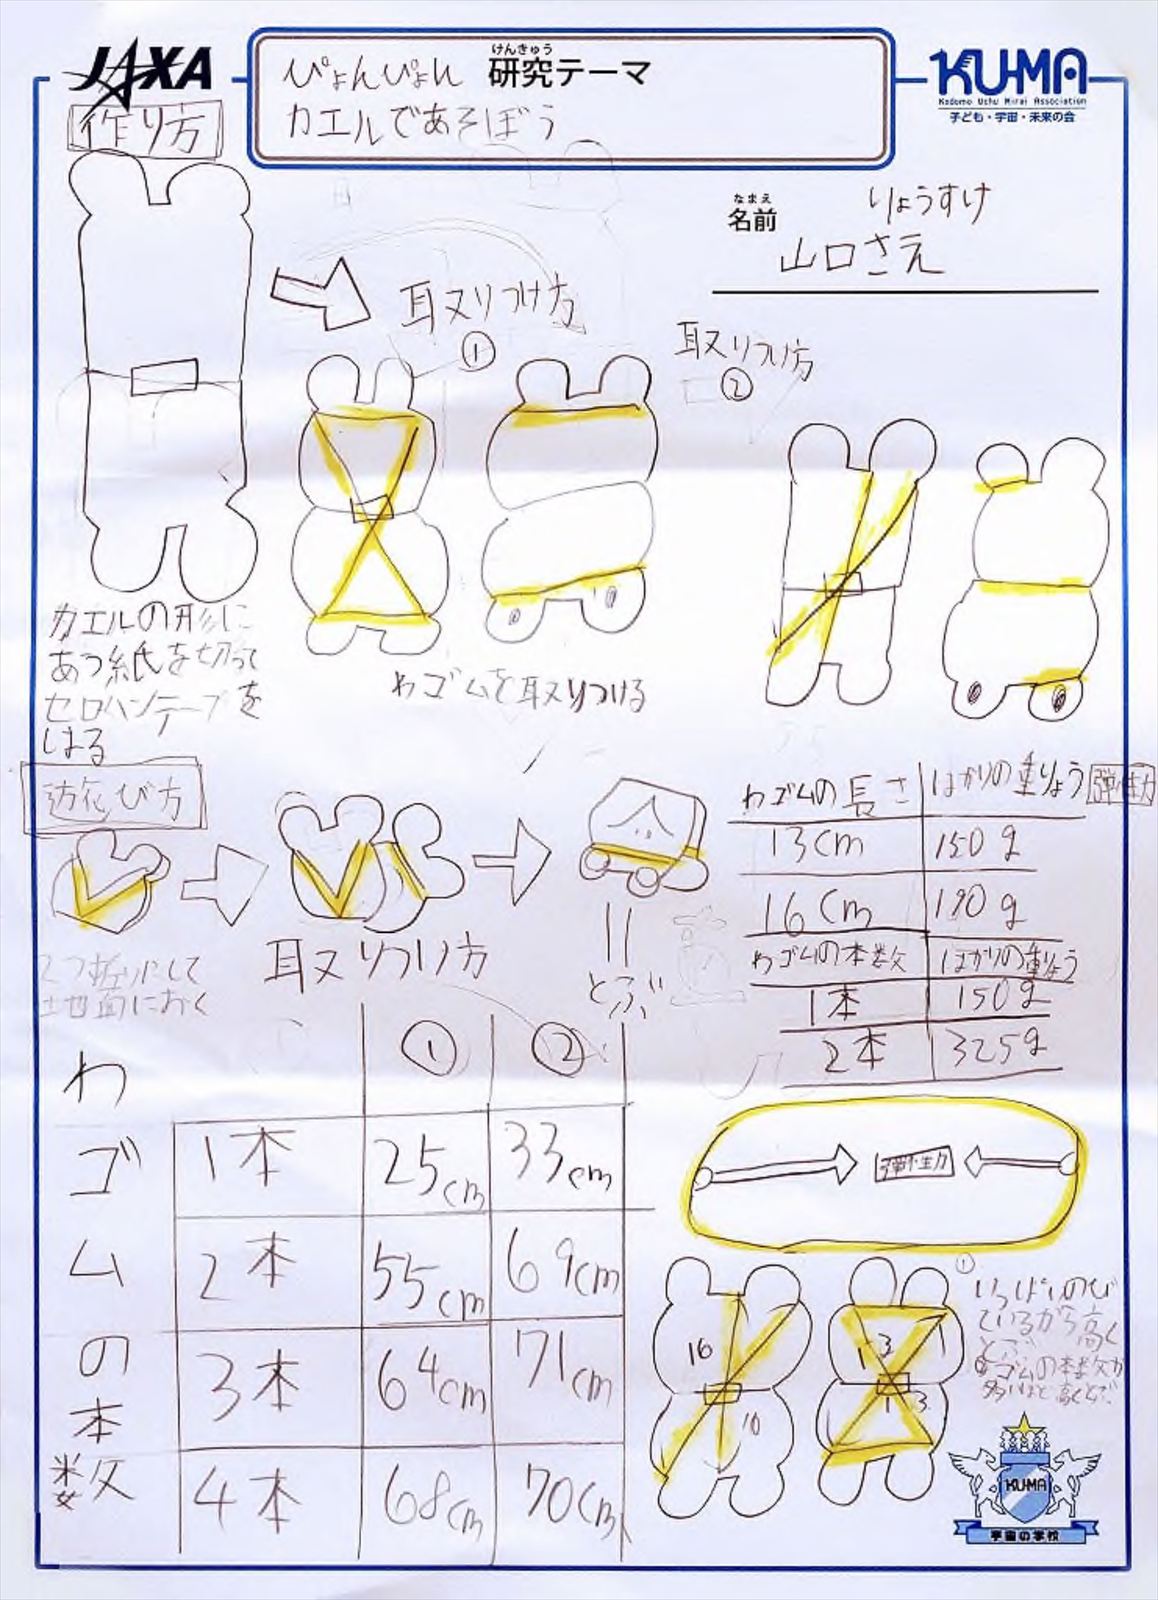 JAXA
けんきゅう
研究テーマ
ぴょんぴょん
カエルであそぼう
KU-MA
Kodomo Uchu Mirai Association
子ども・宇宙・未来の会
作り方
なまえ
名前
りょうすけ
山口さえ
取りつけ方
①
取りつけ方
②
カエルの形に
あう紙を切って
セロハンテープを
はる
わゴムを取りつける
遊び方
2つ折りにして
地面におく
取りつけ方
とぶ
わゴムの長さ はかりの重りょう 弾性力
13cm 150g
16cm 190g
わゴムの本数 はかりの重りょう
1本 150g
2本 325g
わゴムの本数
① ②
1本 25cm 33cm
2本 55cm 69cm
3本 64cm 71cm
4本 68cm 70cm
弾性力
16
10
13
13
①
いっぱいのび
ているから高く
とぶ
わゴムの本数が
多いほど高くとぶ
KUMA
宇宙の学校